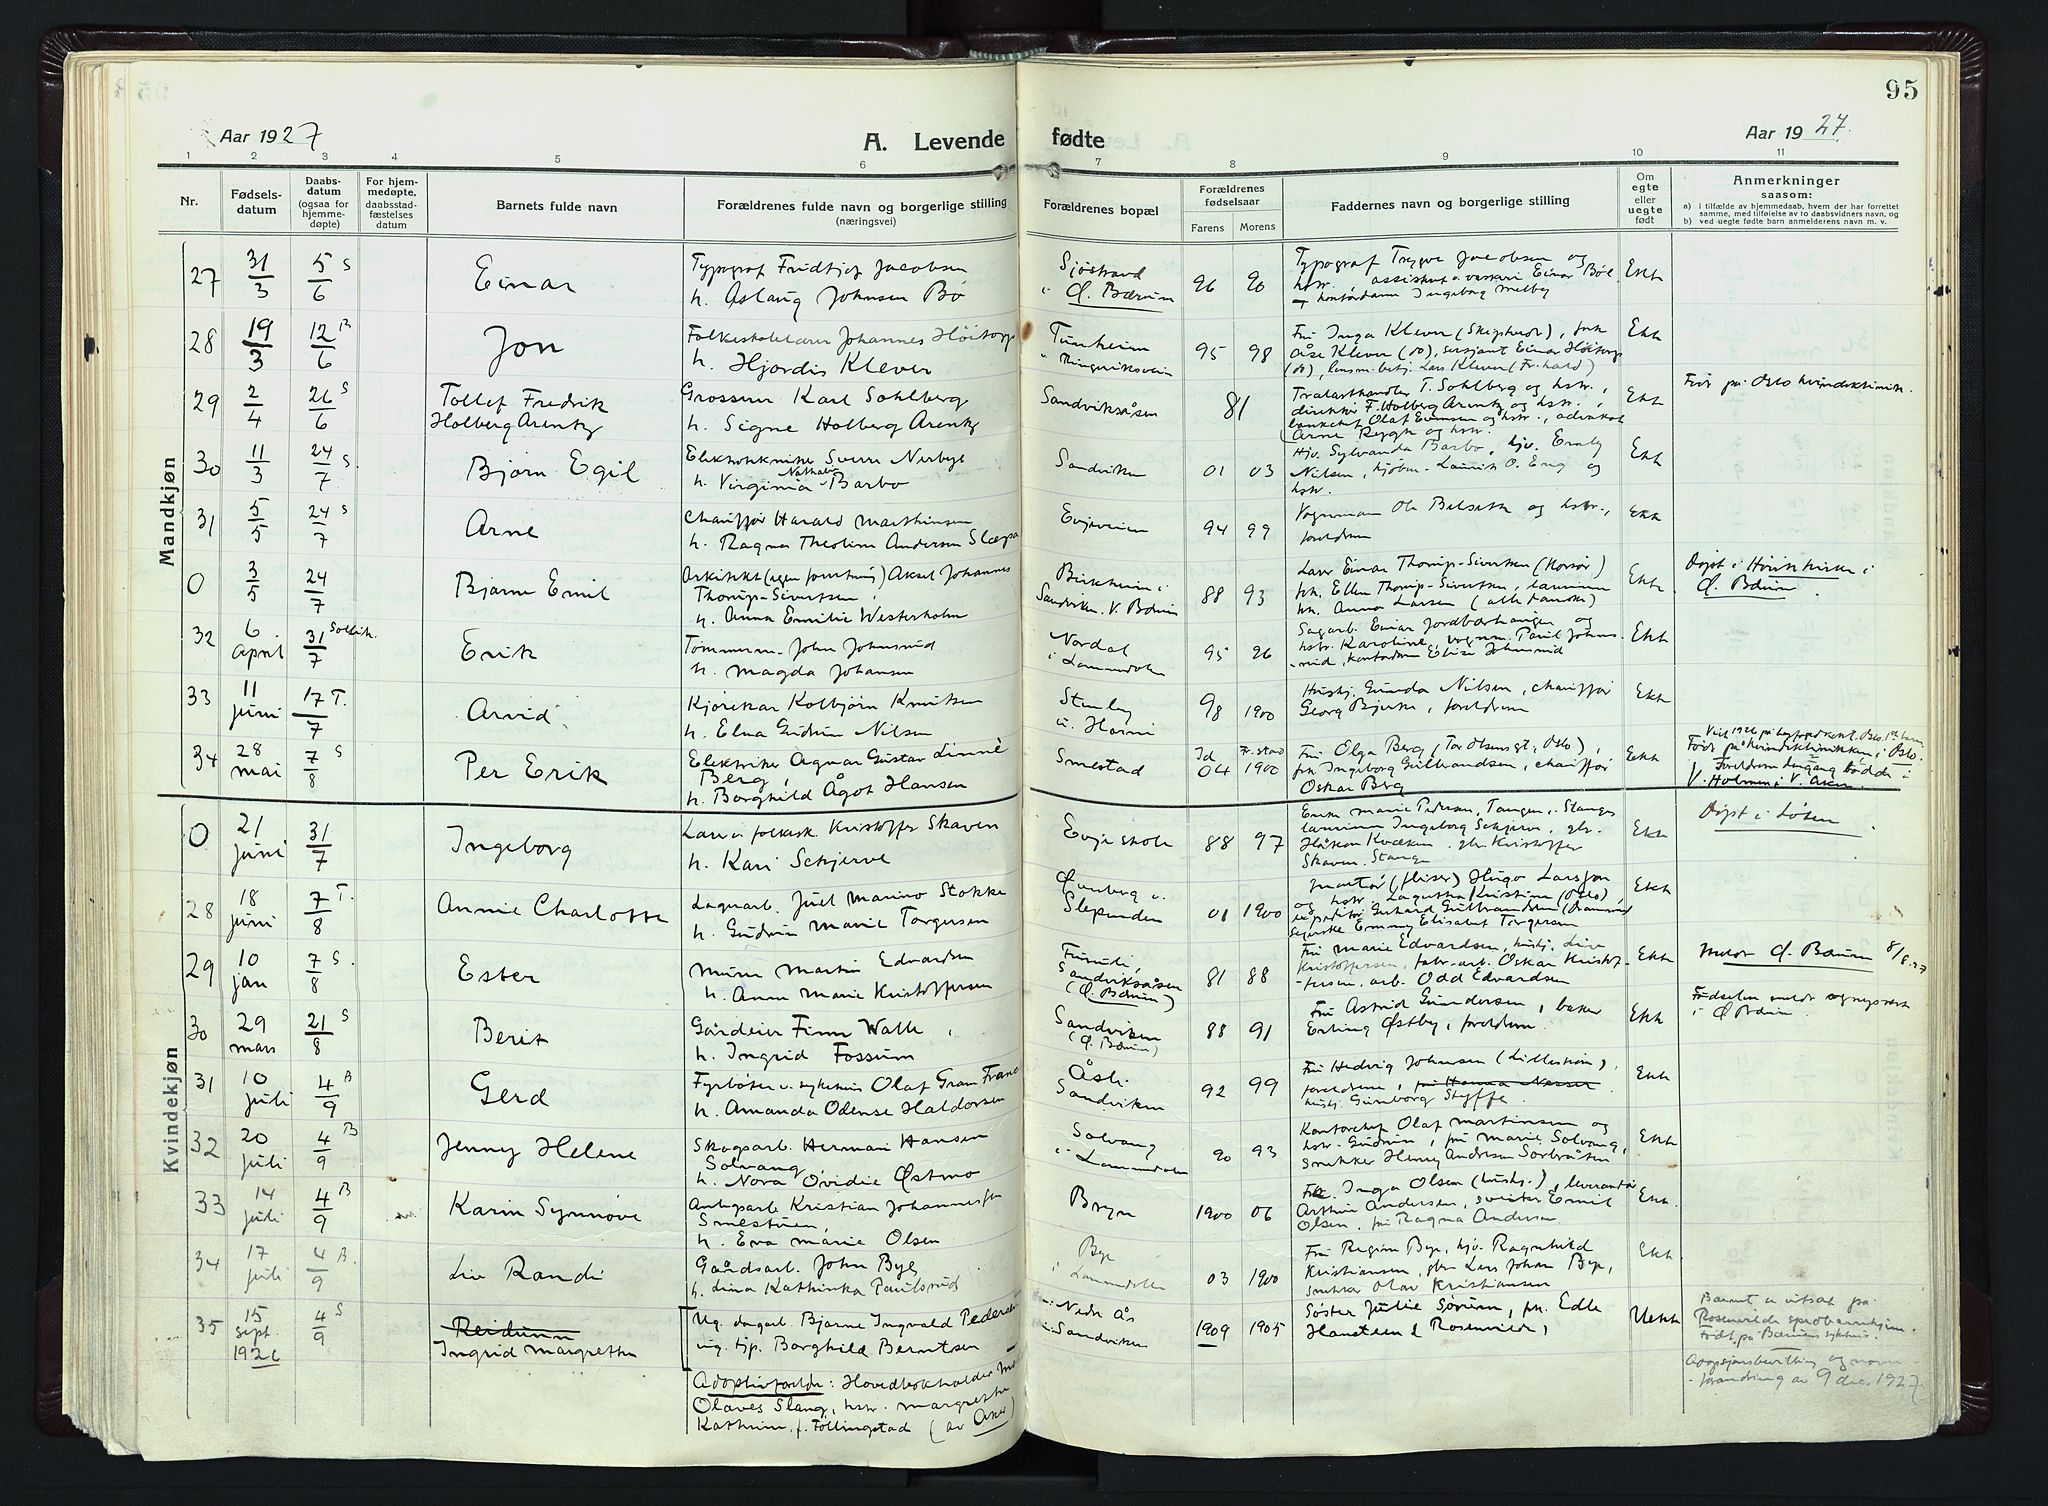 95
Aar 1927
A. Levende fødte
Aar 1927.
1 2 3 4 5 6 7 8 9 10 11
Nr.
Fødsels-
datum
Daabs-
datum
(ogsaa for
hjemme-
døpte)
For hjem-
medøpte,
daabsstad-
fæstelses
datum
Barnets fulde navn
Forældrenes fulde navn og borgerlige stilling
(næringsvei)
Forældrenes bopæl
Forældrenes
fødselsaar
Farens Morens
Faddernes navn og borgerlige stilling
Om
egte
eller
uegte
født
Anmerkninger
saasom:
a) i tilfælde av hjemmedaab, hvem der har forrettet
samme, med tilføielse av to daabsvidners navn, og
b) ved uegte fødte barn anmelderens navn m. v.
Mandkjøn
27 31/3 5/6 S Einar
Typograf Fridtjof Jacobsen
h. Aslaug Johnsen Bø
Sjøstrand
i Ø. Bærum
96 90
Typograf Trygve Jacobsen og
hstr. assistent v. Einar Bøe
kontordame Ingeborg Melby
Ekte
28 19/3 12/6 B Jon
Folkeskolelærer Johannes Høitorp
h. Hjørdis Klever
Tunheim
Ringeriksveien
95 98
Fru Inga Klever, frk
Åse Klever (do), sersjant Einar Høitorp
(do), lensm. betj. Lars Klever
Ekte
29 2/4 26/6 S Tollef Fredrik
Holberg Arentz
Grosserer Karl Sohlberg
h. Signe Holberg Arentz
Sandviksåsen
81
Trelasthandler T. Sohlberg og hstr.,
direktør F. Holberg Arentz og hstr.,
banksjef Olaf Evensen og hstr., advokat
Arne Rygh og hstr.
Ekte
Født på Oslo kvindeklinik.
30 11/3 24/7 S. Bjørn Egil
Elektrotekniker Sverre Nerbye
h. Virginia Nathalie Barbo
Sandviken
01 03
Hjv. Sylvanda Barbo, hjv. Emly
Nilsen, kjøbm. Lauritz O. Eng og
hstr.
Ekte
31 5/5 24/7 S Arne
Chauffør Harald Marthinsen
h. Ragna Theoline Andersen Slæpa
Evjeveien
94 99
Vognmann Ole Belseth og hstr.,
foreldrene
Ekte
0 3/5 24/7 Bjarne Emil
Arkitekt (egen forretning) Aksel Johannes
Thorup-Sivertsen,
h. Anna Emilie Westerholm
Birkheim i
Sandviken. V. Bærum
88 93
Lærer Einar Thorup-Sivertsen (Korsør)
frk. Ellen Thorup-Sivertsen, lærerinne
frk. Anna Larsen (alle danske)
Ekte
Døpt i Høvik kirke i
Ø. Bærum.
32 6. april 31/7 Sollih. Erik
Tømmerm. John Johnsrud
h. Magda Johansen
Nordal
i Lommedalen
95 96
Sagarb. Einar Jordbærhaugen og
hstr. Karoline, vognm. Paul Johns-
rud, kontordame Elise Johnsrud
Ekte
33 11 juni 17/7 T. Arvid
Kjørekar Kolbjørn Knutsen
h. Elna Gudrun Nilsen
Stenby
v. Horni
98 1900
Hushj. Gunda Nilsen, chauffør
Georg Bjerke, foreldrene
Ekte
34 28 mai 7/8 S Per Erik
Elektriker Agnar Gustav Linné
Berg,
h. Borghild Ågot Hansen
Smestad
Id 04 Fr.stad 1900
Fru Olga Berg (Tor Olsensgt., Oslo),
frk. Ingeborg Gulbrandsen, chauffør
Oskar Berg
Ekte
Født på kvindeklinikken i Oslo.
Foreldrene dengang bodde i
V. Holmen i V. Aker.
Kvindekjøn
0 21 juni 31/7 Ingeborg
Lærer i folkesk. Kristoffer Skaven
h. Kari Schjerve
Evje skole
88 97
Enke Marie Petersen, Tangen i Stange
lærerinne Ingeborg Schjerve, gbr.
Håkon Kvækin, gbr. Kristoffer
Skaven. Stange
Ekte
Døpt i Løten.
28 18 juni 7/8 T. Annie Charlotte
Lagerarb. Juel Marino Stokke
h. Gudrun Marie Torgersen
Slependen
01 1900
Murer (fliser) Hugo Larsson
og hstr. Lagertha Kristine (Oslo),
ekspeditør Gerhard Gulbrandsen (Drammen)
syerske Emmy Elisabet Torgersen
Ekte
29 10 jan 7/8 S. Ester
Murer Martin Edvardsen
h. Anne Marie Kristoffersen
Furuli,
Sandviksåsen
(Ø. Bærum)
81 88
Fru Marie Edvardsen, hushj. Liv
Kristoffersen, fabr.-arb. Oskar Kristof-
fersen, arb. Odd Edvardsen
Ekte
Ø. Bærum 8/8.27
30 29 mars 21/8 S Berit
Gårdeier Finn Walle,
h. Ingrid Fossum
Sandviken
(Ø. Bærum)
88 91
Fru Astrid Gundersen, baker
Erling Østby, foreldrene
Ekte
Fødselen meldt og nyskrevet
i Ø Bærum.
31 10 juli 4/9 B Gerd
Fyrbøter v. sykehus Olaf Gram Franc
h. Amanda Odense Haldorsen
Åsli.
Sandviken
92 99
Fru Hedvig Johnsen (Lillestrøm),
foreldrene, fru Hanna Nesset
hushj. Gunborg Styffe.
Ekte
32 20 juli 4/9 B Jenny Helene
Skogsarb. Herman Hansen
Solvang
h. Nora Ovidie Østmo
Solvang
i Lommedalen
90 93
Kontorchef Olaf Martinsen og
hstr. Gudrun, fru Marie Solvang,
snekker Henry Andersen Sørbråten
Ekte
33 14 juli 4/9 B Karin Synnøve
Anlegsarb. Kristian Johannessen
Smestuen,
h. Eva Marie Olsen
Bryn
1900 06
Frk. Inga Olsen (hushj.), leverandør
Arthur Andersen, sveiser Emil
Olsen, fru Ragna Andersen
Ekte
34 17 juli 4/9 B. Liv Randi
Gårdsarb. John Bye
h. Lina Kathinka Paulsrud
Bye
i Lommedalen
03 1900
Fru Regine Bye, hjv. Ragnhild
Kristiansen, gbr. Lars Johan Bye,
snekker Olav Kristiansen
Ekte
35 15 sept. 1926 4/9 S Reidunn
Ingrid Margrethe
Ug. dagarb. Bjarne Ingvald Pedersen
ug. tjp. Borghild Berntsen
Nedre Ås
i Sandviken
1909 1905
Søster Julie Sørum, frk. Edle
Hansteen (Rosenvilde)
Uekte
Barnet er utsat på
Rosenvilde spebarnhjem.
Født på Bærums sykehus.
Adopsjonsbevilling og navne-
forandring av 9 des. 1927.
Adoptivforeldre: Hovedbokholder
Olaves Slang, hstr. Margrethe
Kathrine, f. Føllingstad (av Aker)